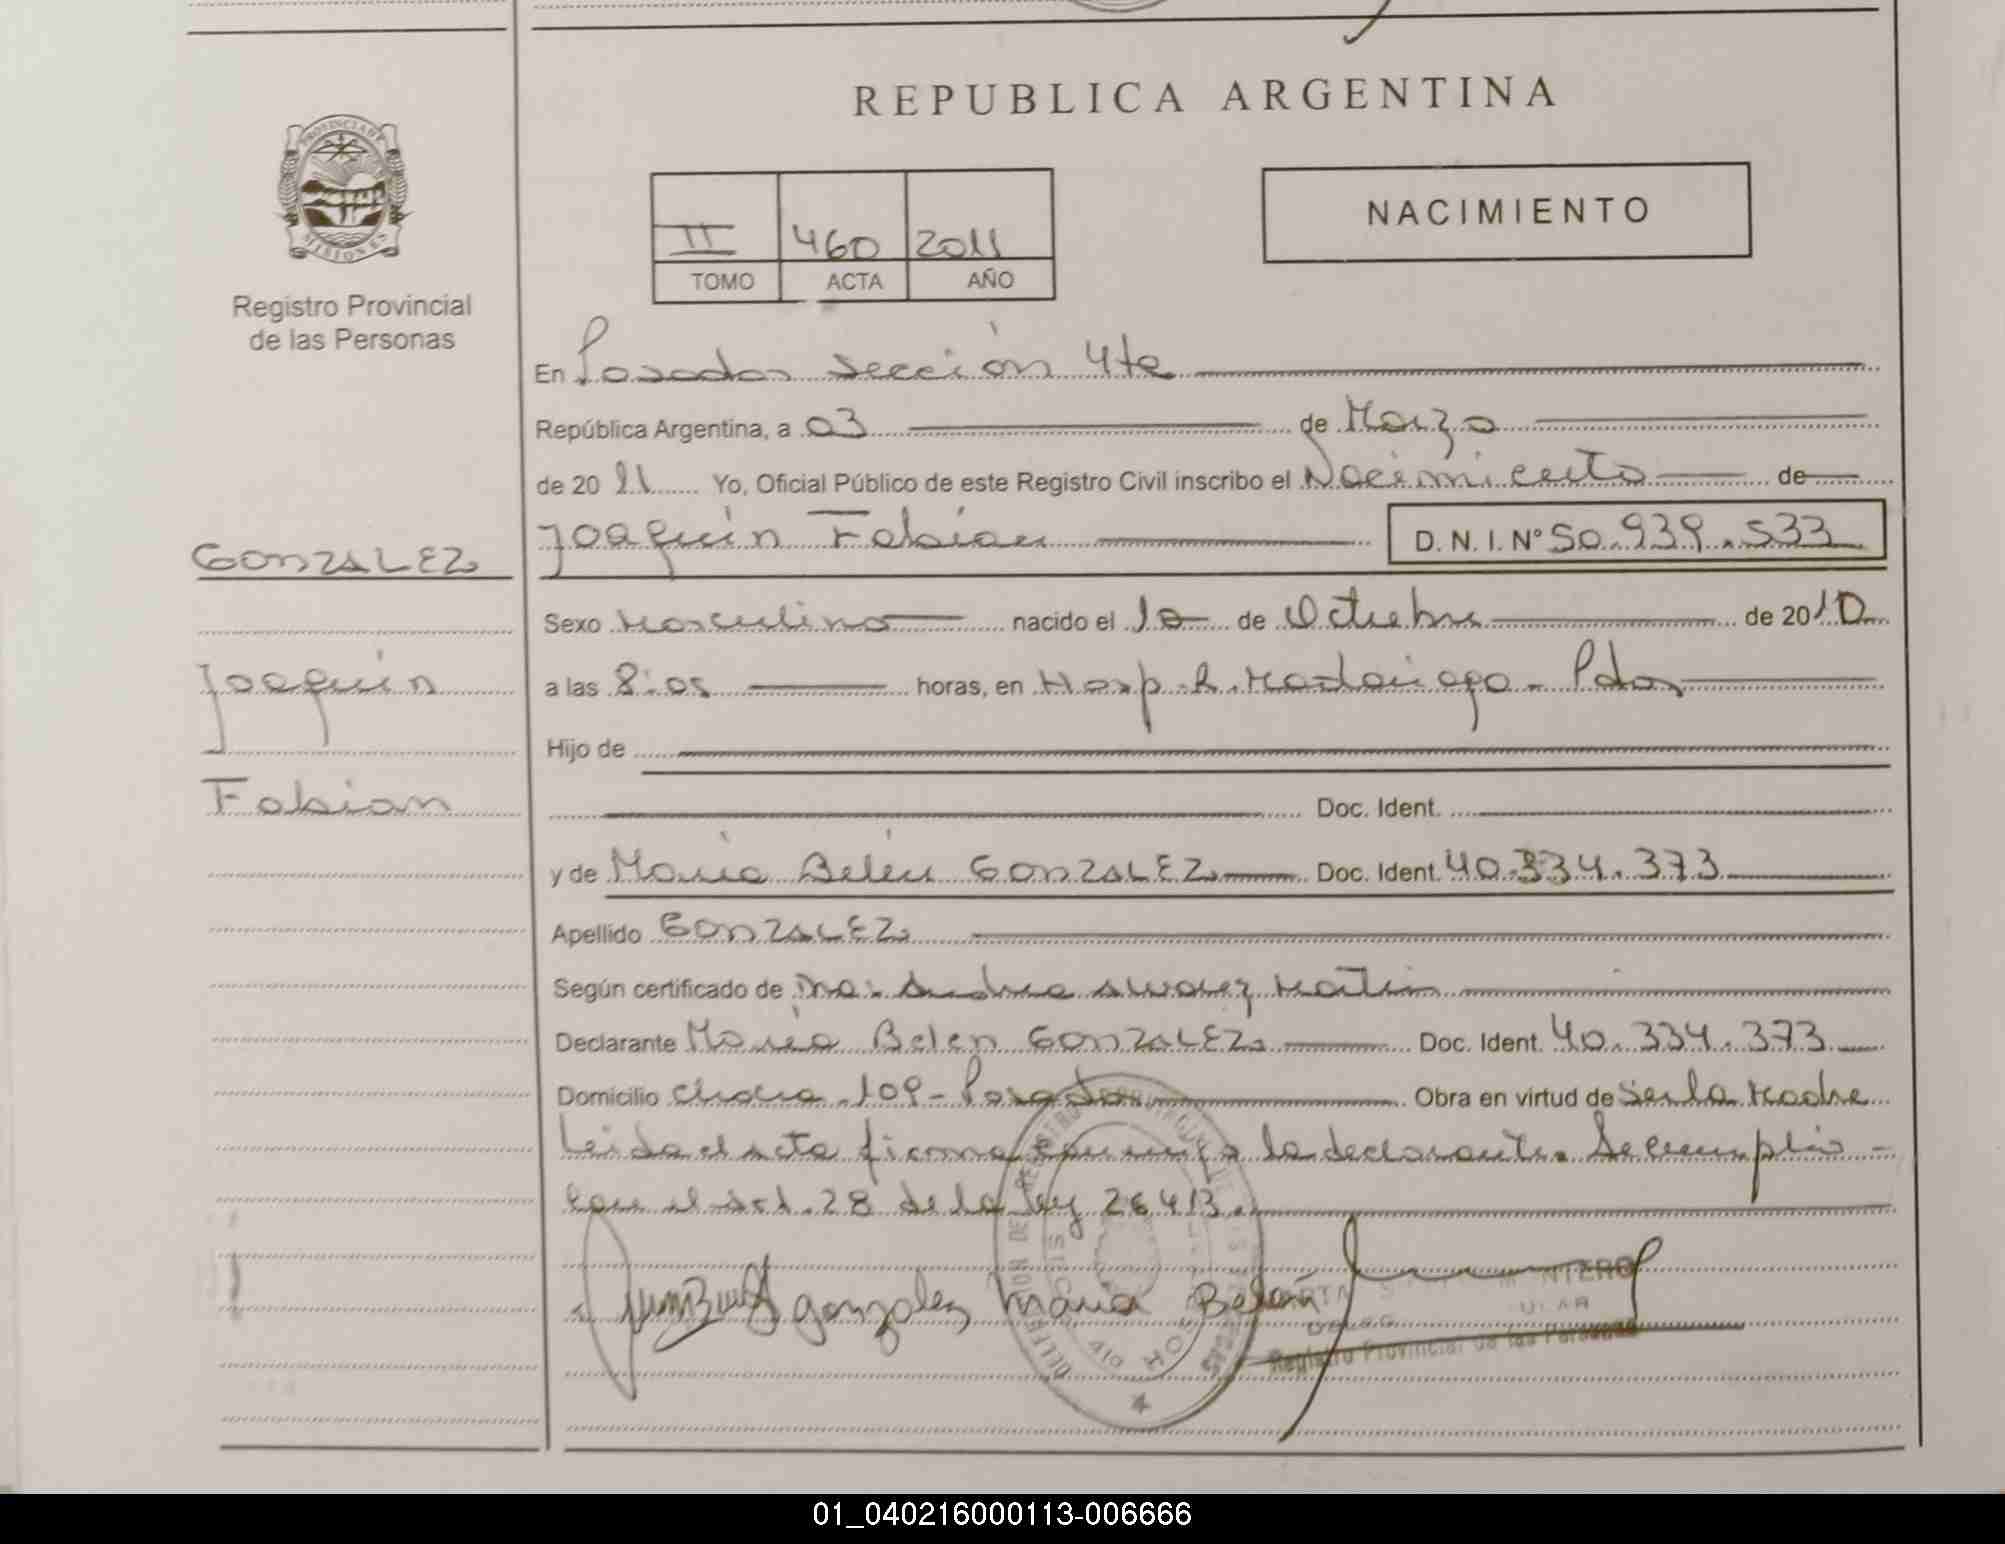 REPUBLICA ARGENTINA
PROVINCIA DE
MISIONES
Registro Provincial
de las Personas
II 460 2011
TOMO ACTA AÑO
NACIMIENTO
En Posadas Sección 4ta
República Argentina, a 03 de Marzo
de 20 11 Yo, Oficial Público de este Registro Civil inscribo el Nacimiento de
GONZALEZ
Joaquín Fabián
D. N. I. Nº 50.939.533
Sexo Masculino nacido el 10 de Octubre de 2010
Joaquín
a las 8:05 horas, en Hosp. R. Madariaga - Pdas
Hijo de
Fabian
Doc. Ident.
y de María Belén GONZALEZ Doc. Ident. 40.334.373
Apellido GONZALEZ
Según certificado de Dra. Andrea Alvarez Martin
Declarante María Belen GONZALEZ Doc. Ident. 40.334.373
Domicilio Chacra 109 - Posadas Obra en virtud de Ser la Madre
Leida el acta firma conmigo la declarante. Se cumplio
con el art. 28 de la ley 26413.
gonzalez maria Belén
Registro Provincial de las Personas
01_040216000113-006666